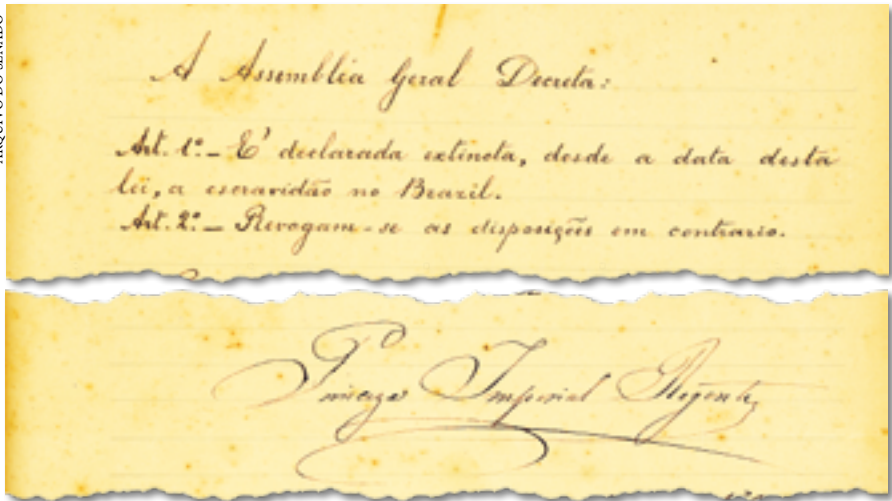 ARQUIVO DO SENADO
A Assemblea Geral Decreta:
Art. 1º - E' declarada extincta, desde a data desta
lei, a escravidão no Brazil.
Art. 2º - Revogam-se as disposições em contrario.
Princeza Imperial Regente